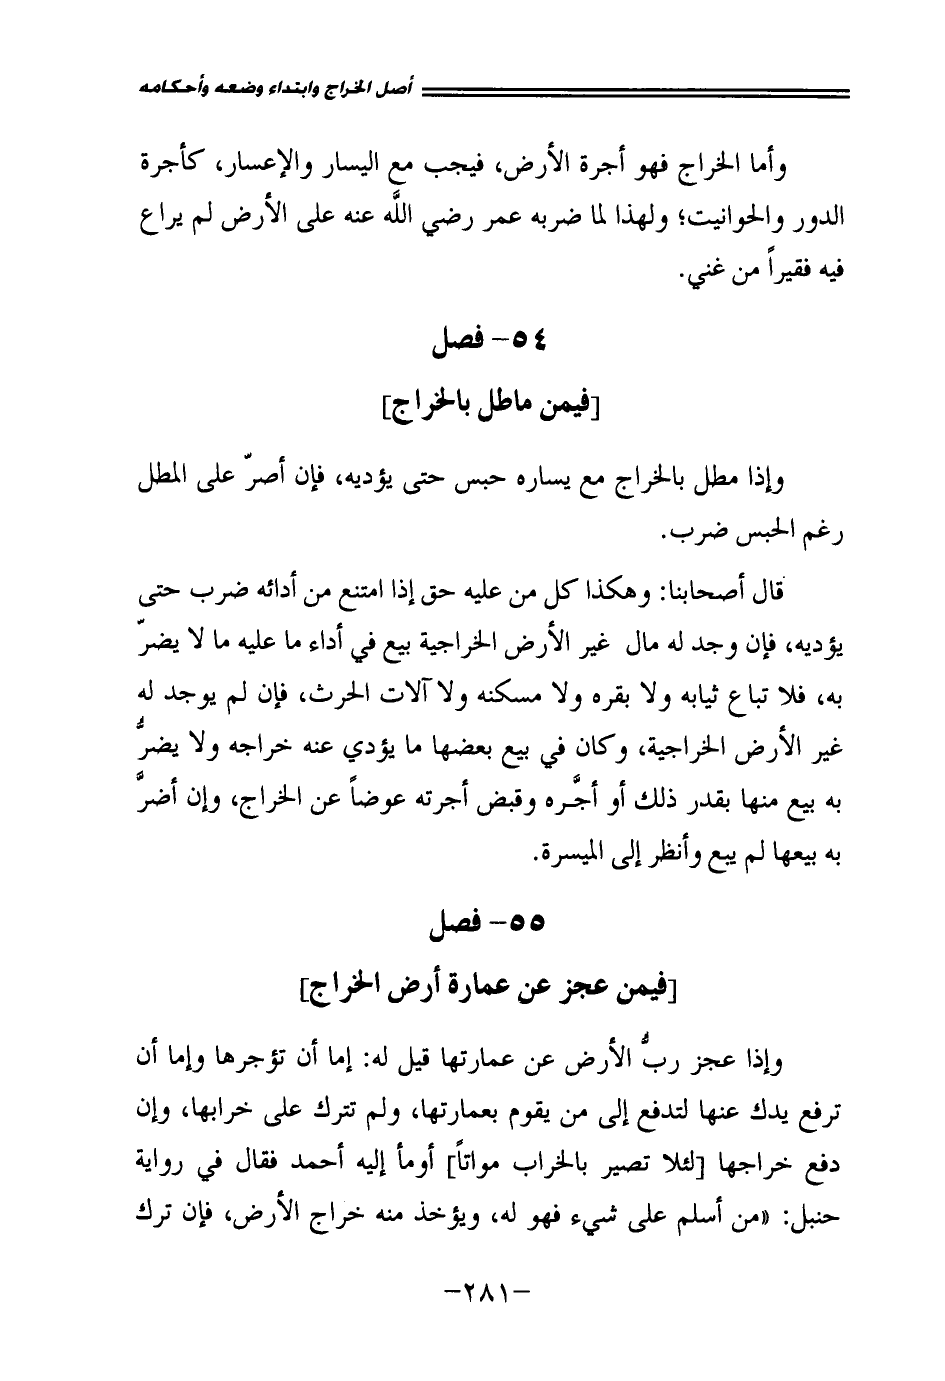 أصل الخراج وابتداء وضعه وأحكامه
وأما الخراج فهو أجرة الأرض، فيجب مع اليسار والإعسار، كأجرة
الدور والحوانيت؛ ولهذا لما ضربه عمر رضي اللَّه عنه على الأرض لم يراع
فيه فقيراً من غني.
٥٤- فصل
[فيمن ماطل بالخراج]
وإذا مطل بالخراج مع يساره حبس حتى يؤديه، فإن أصرّ على المطل
رغم الحبس ضرب.
قال أصحابنا: وهكذا كل من عليه حق إذا امتنع من أدائه ضرب حتى
يؤديه، فإن وجد له مال غير الأرض الخراجية بيع في أداء ما عليه ما لا يضرّ
به، فلا تباع ثيابه ولا بقره ولا مسكنه ولا آلات الحرث، فإن لم يوجد له
غير الأرض الخراجية، وكان في بيع بعضها ما يؤدي عنه خراجه ولا يضرُّ
به بيع منها بقدر ذلك أو أجَّره وقبض أجرته عوضاً عن الخراج، وإن أضرَّ
به بيعها لم يبع وأنظر إلى الميسرة.
٥٥- فصل
[فيمن عجز عن عمارة أرض الخراج]
وإذا عجز ربُّ الأرض عن عمارتها قيل له: إما أن تؤجرها وإما أن
ترفع يدك عنها لتدفع إلى من يقوم بعمارتها، ولم تترك على خرابها، وإن
دفع خراجها [لئلا تصير بالخراب مواتاً] أومأ إليه أحمد فقال في رواية
حنبل: «من أسلم على شيء فهو له، ويؤخذ منه خراج الأرض، فإن ترك
-٢٨١-